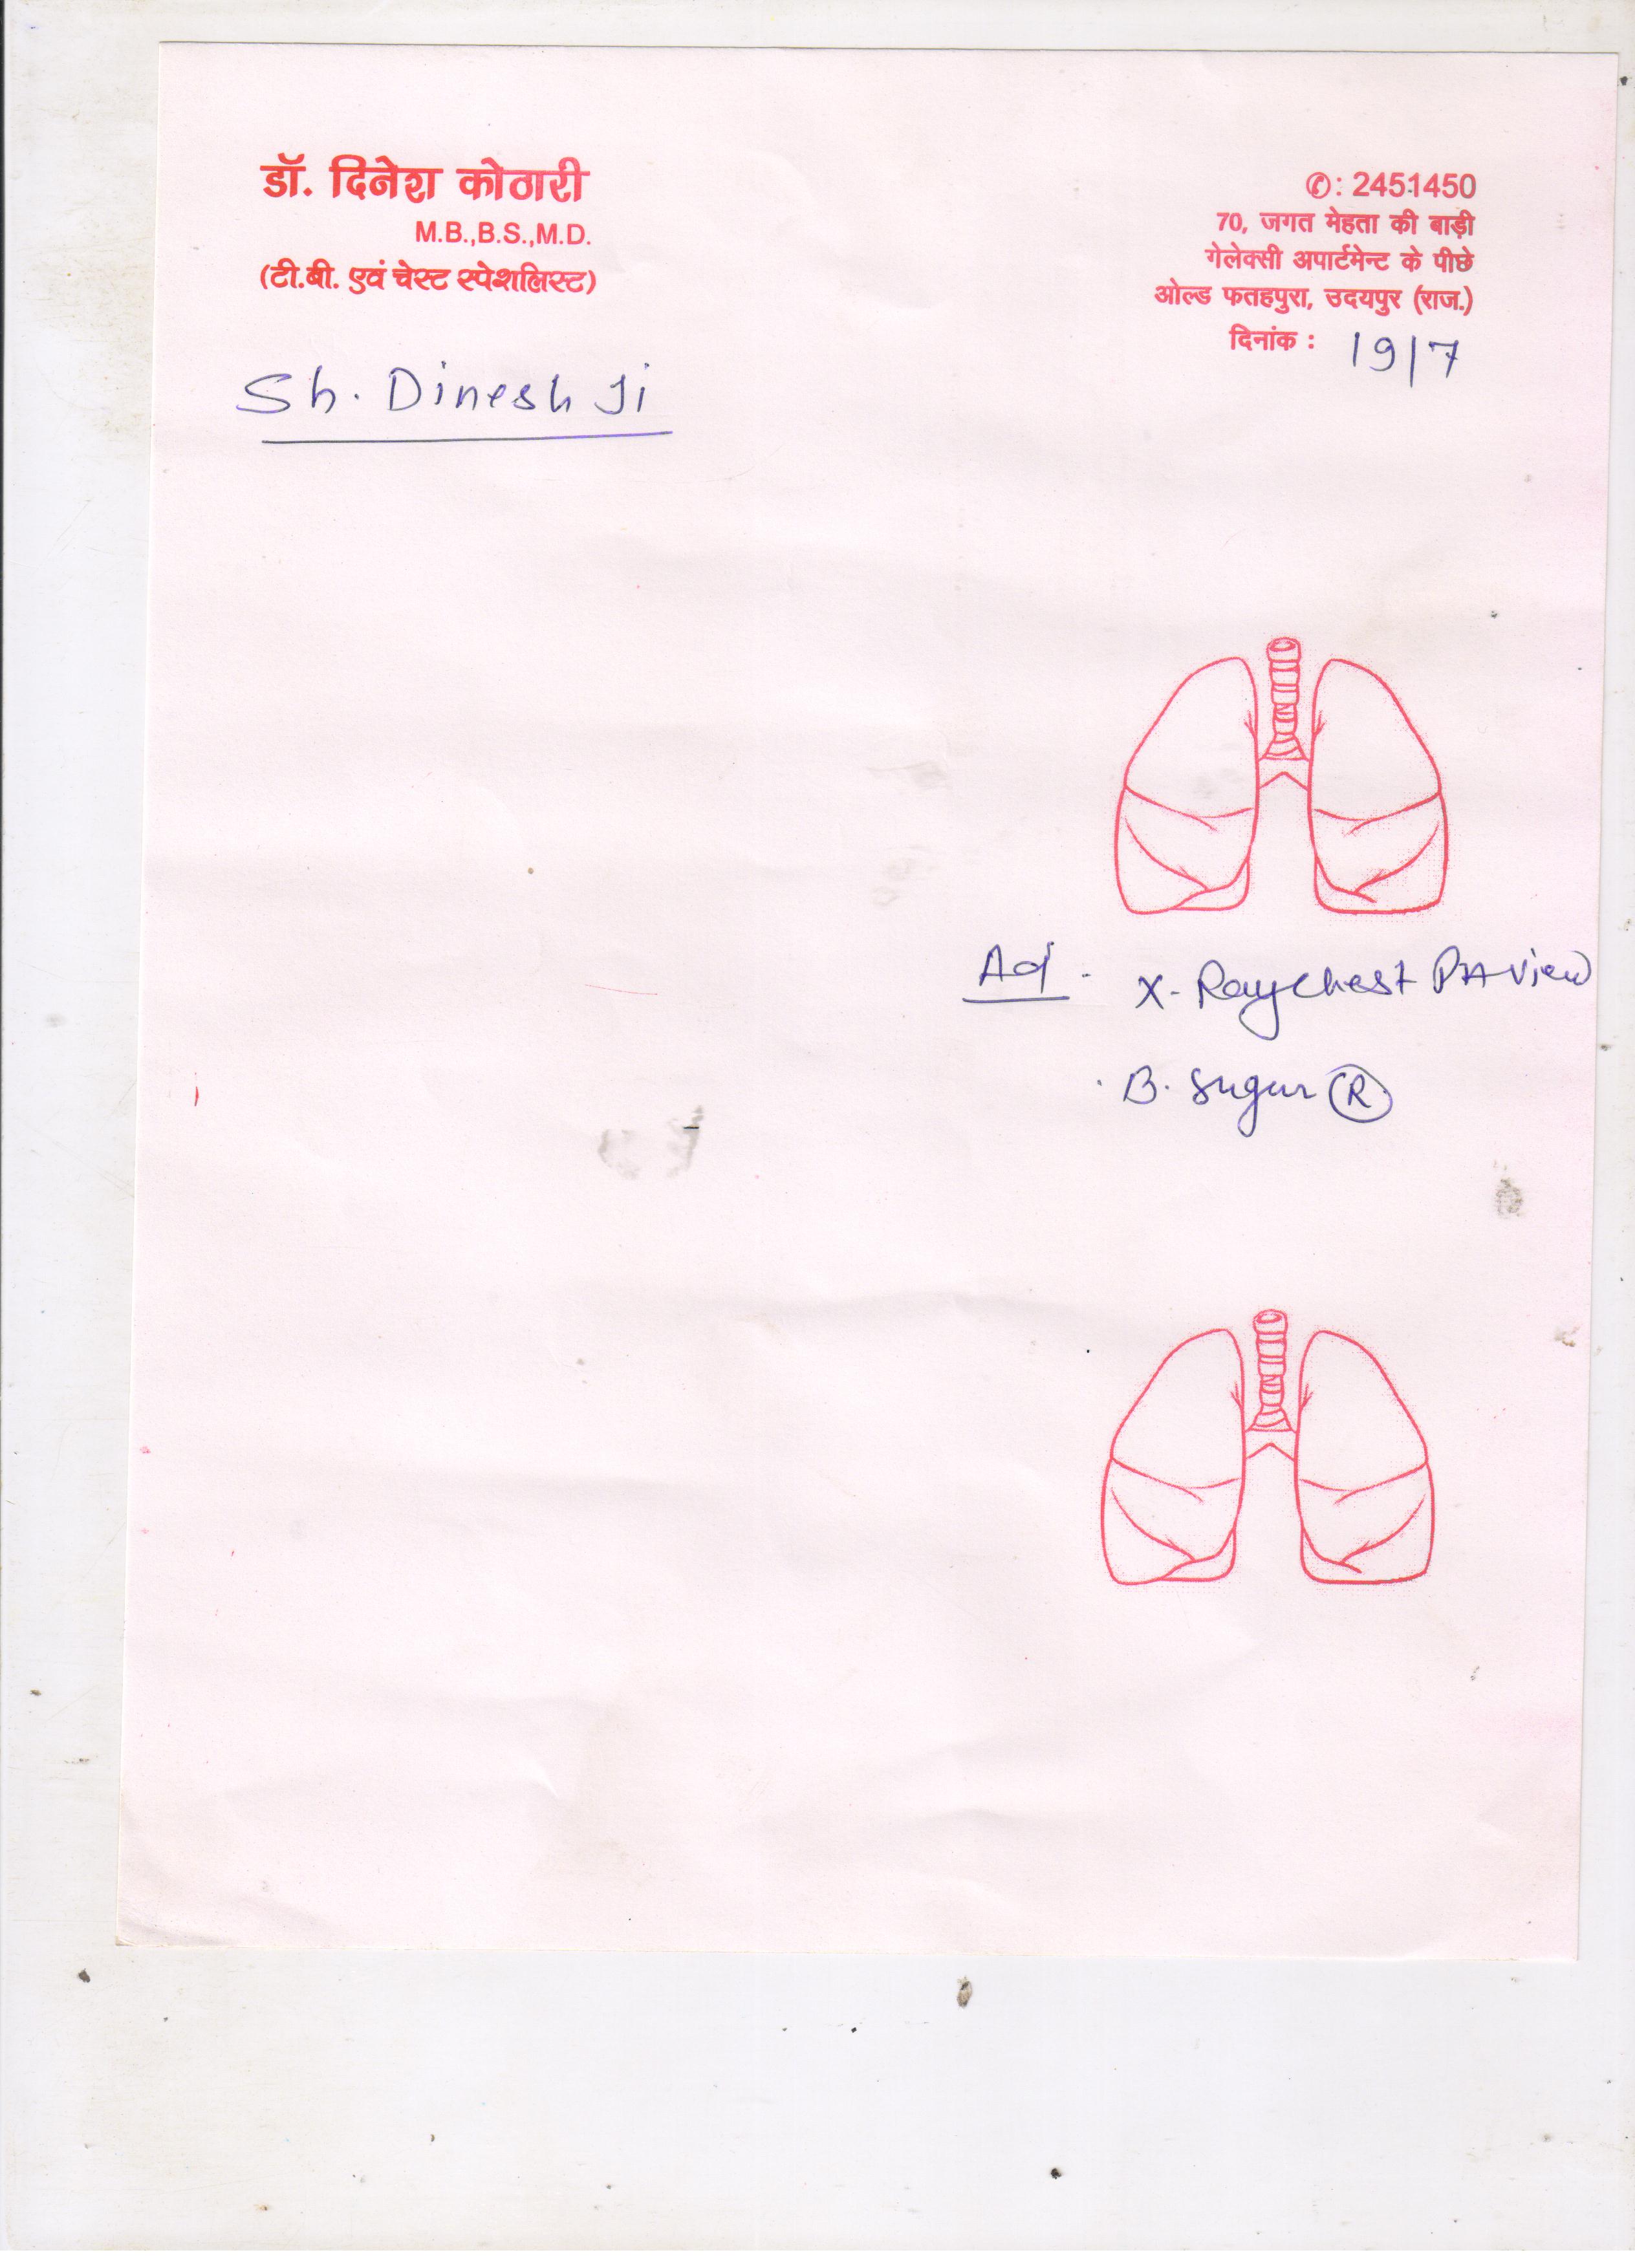 डॉ. दिनेश कोठारी
M.B.,B.S.,M.D.
(टी.बी. एवं चेस्ट स्पेशलिस्ट)
✆: 2451450
70, जगत मेहता की बाड़ी
गेलेक्सी अपार्टमेन्ट के पीछे
ओल्ड फतहपुरा, उदयपुर (राज.)
दिनांक : 19/7
Sh. Dinesh Ji
Ad - X-Ray chest PA view
B. Sugar (R)